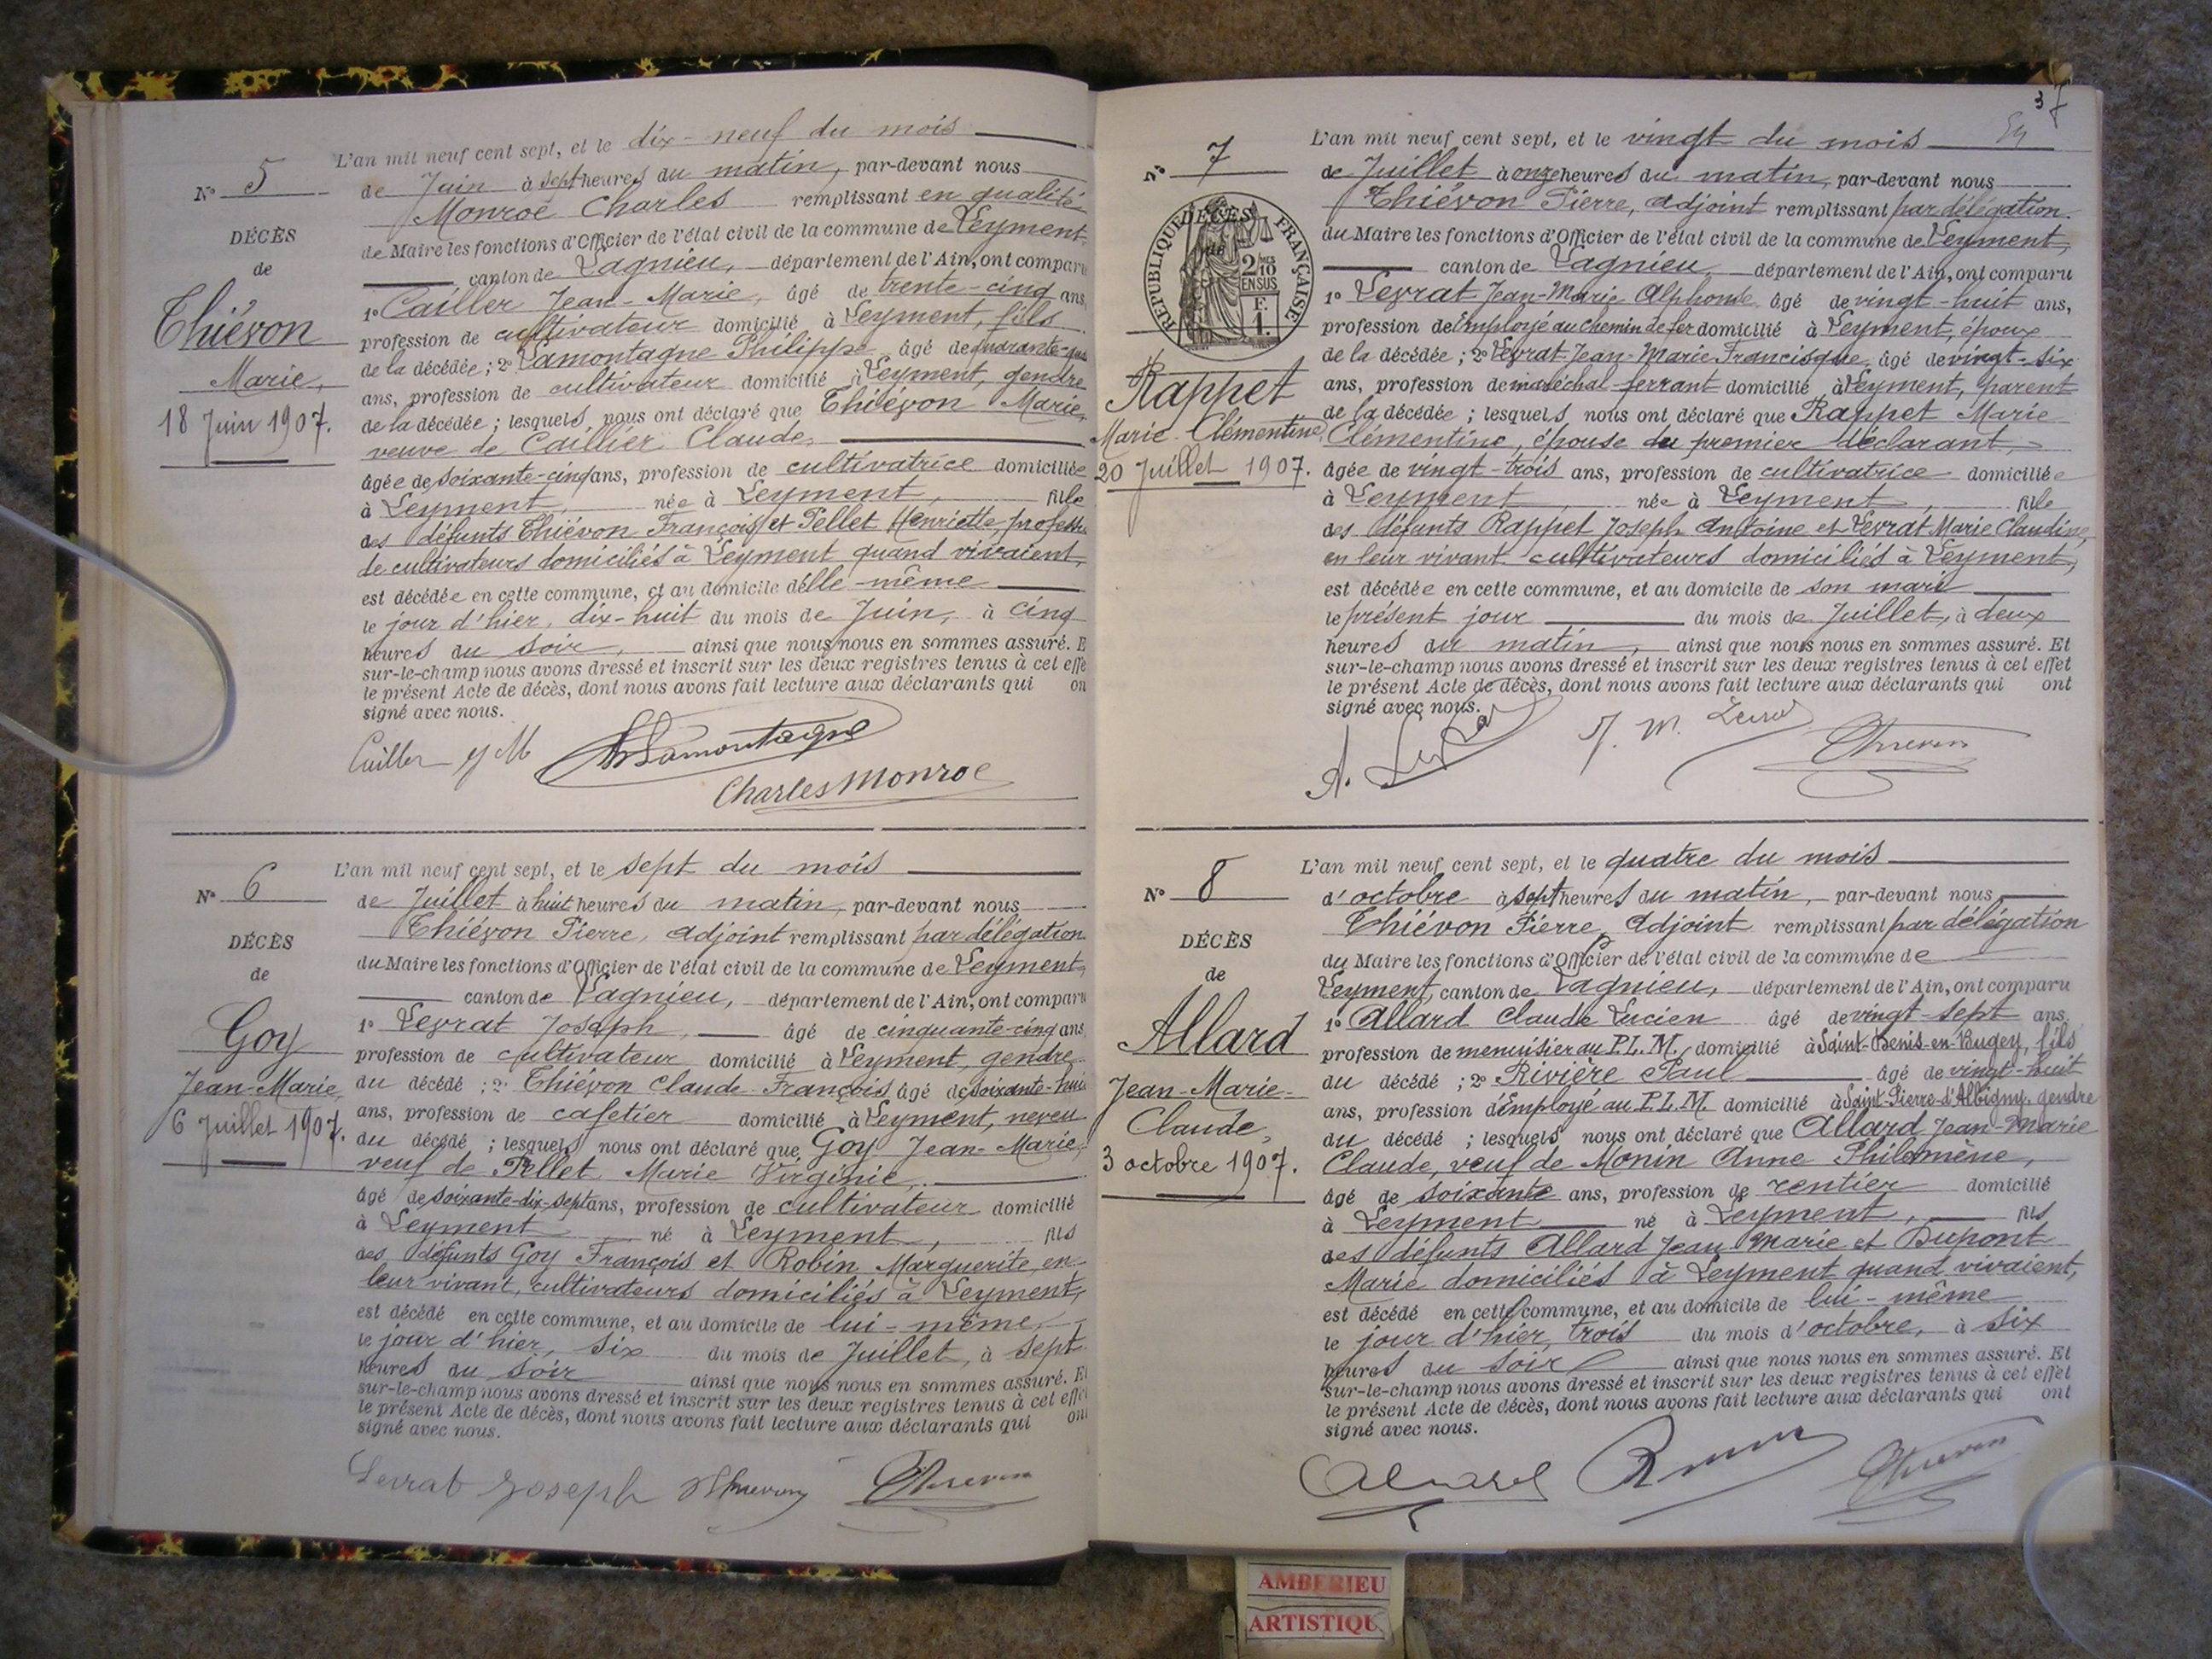 N° 5
DÉCÈS
de
Thiévon
Marie,
18 Juin 1907.
L'an mil neuf cent sept, et le dix-neuf du mois
de Juin à sept heures du matin, par-devant nous
Monroë Charles remplissant en qualité
de Maire les fonctions d'Officier de l'état civil de la commune de Leyment,
canton de Lagnieu, département de l'Ain, ont comparu
1° Cailler Jean-Marie, âgé de trente-cinq ans,
profession de cultivateur domicilié à Leyment, fils
de la décédée ; 2° Lamontagne Philippe âgé de
ans, profession de cultivateur domicilié à Leyment, gendre
de la décédée ; lesquels, nous ont déclaré que Thiévon Marie,
veuve de Caillier Claude,
âgée de soixante-cinq ans, profession de cultivatrice domiciliée
à Leyment, née à Leyment, fille
des défunts Thiévon François et Pellet Henriette,
de cultivateurs domiciliés à Leyment quand vivaient,
est décédée en cette commune, et au domicile d'elle-même
le jour d'hier, dix-huit du mois de Juin, à cinq
heures du soir, ainsi que nous nous en sommes assuré. E
sur-le-champ nous avons dressé et inscrit sur les deux registres tenus à cet effe
le présent Acte de décès, dont nous avons fait lecture aux déclarants qui on
signé avec nous.
Cailler J M Lamontagne
Charles Monroe
N° 6
DÉCÈS
de
Goy
Jean-Marie,
6 Juillet 1907.
L'an mil neuf cent sept, et le sept du mois
de Juillet à huit heures du matin, par-devant nous
Thiévon Pierre, adjoint remplissant par délégation
du Maire les fonctions d'Officier de l'état civil de la commune de Leyment,
canton de Lagnieu, département de l'Ain, ont comparu
1° Levrat Joseph, âgé de cinquante-cinq ans,
profession de cultivateur domicilié à Leyment, gendre
du décédé ; 2° Thiévon Claude-François, âgé de soixante-huit
ans, profession de cafetier domicilié à Leyment, neveu
du décédé ; lesquels nous ont déclaré que Goy Jean-Marie,
veuf de Pellet Marie Virginie,
âgé de soixante-dix-sept ans, profession de cultivateur domicilié
à Leyment né à Leyment, fils
des défunts Goy François et Robin Marguerite, en
leur vivant, cultivateurs domiciliés à Leyment,
est décédé en cette commune, et au domicile de lui-même,
le jour d'hier, six du mois de Juillet, à sept
heures du soir ainsi que nous nous en sommes assuré. Et
sur-le-champ nous avons dressé et inscrit sur les deux registres tenus à cet effet
le présent Acte de décès, dont nous avons fait lecture aux déclarants qui ont
signé avec nous.
Levrat Joseph Thievon Thievon
37
N° 7
RÉPUBLIQUE FRANÇAISE
DÉCÈS
de
2/10 EN SUS
F. 1.
Rappet
Marie Clémentine,
20 Juillet 1907.
L'an mil neuf cent sept, et le vingt du mois
de Juillet à onze heures du matin, par-devant nous
Thiévon Pierre, adjoint remplissant par délégation
du Maire les fonctions d'Officier de l'état civil de la commune de Leyment,
canton de Lagnieu, département de l'Ain, ont comparu
1° Levrat Jean-Marie Alphonse âgé de vingt-huit ans,
profession d'Employé au chemin de fer domicilié à Leyment, époux
de la décédée ; 2° Levrat Jean-Marie Francisque, âgé de vingt-six
ans, profession de maréchal-ferrant domicilié à Leyment, parent
de la décédée ; lesquels nous ont déclaré que Rappet Marie
Clémentine, épouse du premier déclarant,
âgée de vingt-trois ans, profession de cultivatrice domiciliée
à Leyment née à Leyment, fille
des défunts Rappet Joseph Antoine et Levrat Marie Claudine,
en leur vivant cultivateurs domiciliés à Leyment,
est décédée en cette commune, et au domicile de son mari
le présent jour du mois de Juillet, à deux
heures du matin, ainsi que nous nous en sommes assuré. Et
sur-le-champ nous avons dressé et inscrit sur les deux registres tenus à cet effet
le présent Acte de décès, dont nous avons fait lecture aux déclarants qui ont
signé avec nous.
A. Levrat J. M. Levrat Thievon
N° 8
DÉCÈS
de
Allard
Jean-Marie-
Claude,
3 octobre 1907.
L'an mil neuf cent sept, et le quatre du mois
d'octobre à sept heures du matin, par-devant nous,
Thiévon Pierre, Adjoint remplissant par délégation
du Maire les fonctions d'Officier de l'état civil de la commune de
Leyment, canton de Lagnieu, département de l'Ain, ont comparu
1° Allard Claude Lucien âgé de vingt-sept ans,
profession de menuisier au P.L.M. domicilié à Saint-Denis-en-Bugey, fils
du décédé ; 2° Rivière Paul âgé de vingt-huit
ans, profession d'Employé au P.L.M. domicilié à Saint-Pierre-d'Albigny, gendre
du décédé ; lesquels nous ont déclaré que Allard Jean-Marie
Claude, veuf de Monin Anne Philomène,
âgé de soixante ans, profession de rentier domicilié
à Leyment né à Leyment, fils
des défunts Allard Jean Marie et Dupont
Marie domiciliés à Leyment quand vivaient,
est décédé en cette commune, et au domicile de lui-même
le jour d'hier, trois du mois d'octobre, à six
heures du soir ainsi que nous nous en sommes assuré. Et
sur-le-champ nous avons dressé et inscrit sur les deux registres tenus à cet effet
le présent Acte de décès, dont nous avons fait lecture aux déclarants qui ont
signé avec nous.
Thievon
AMBERIEU
ARTISTIQU